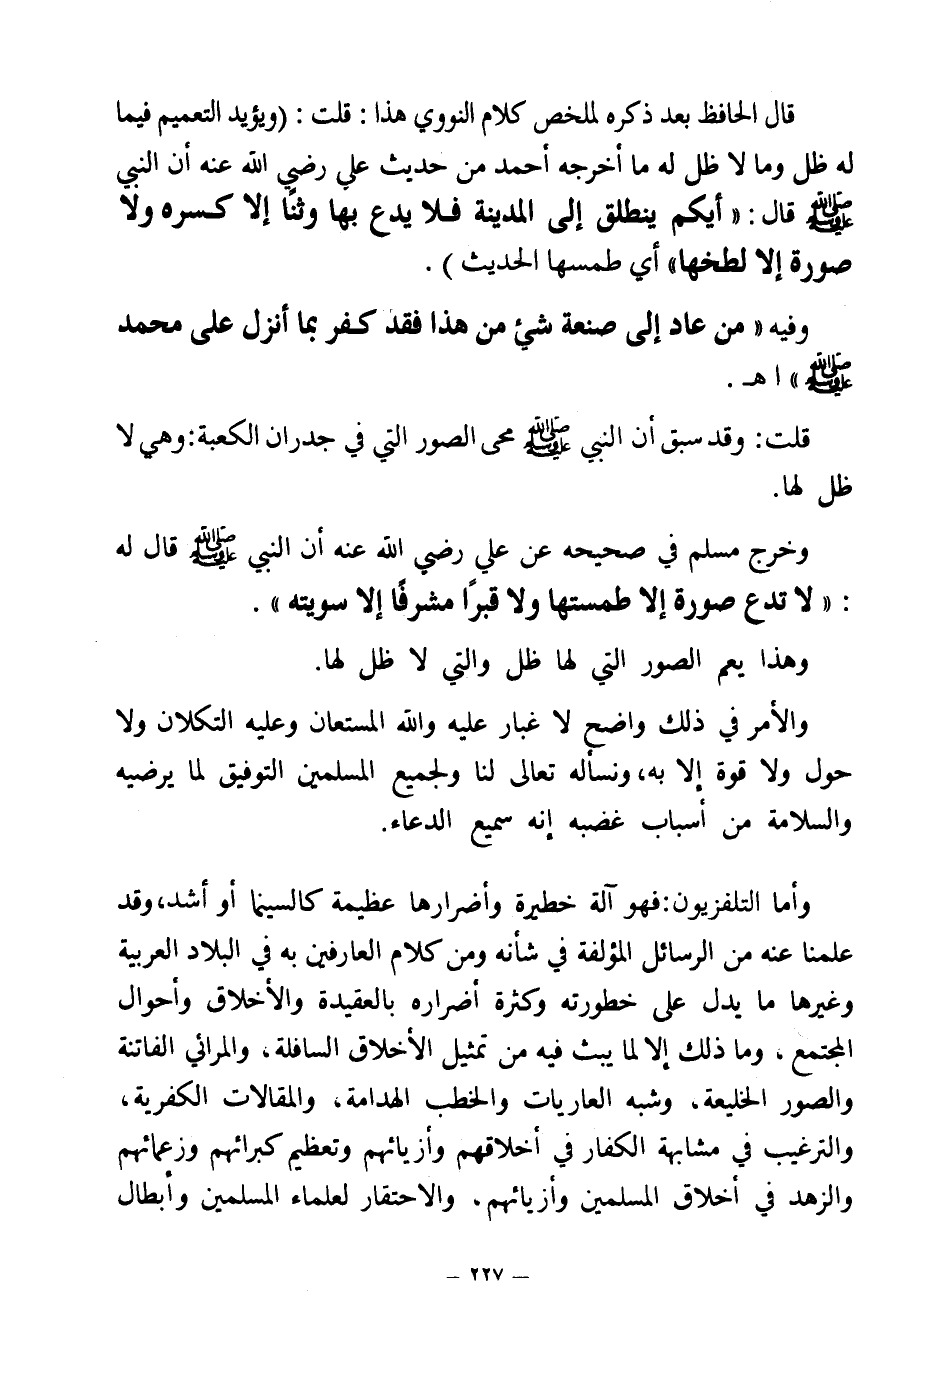 قال الحافظ بعد ذكره لملخص كلام النووي هذا : قلت : (ويؤيد التعميم فيما
له ظل وما لا ظل له ما أخرجه أحمد من حديث علي رضي الله عنه أن النبي
ﷺ قال : « أيكم ينطلق إلى المدينة فلا يدع بها وثنًا إلا كسره ولا
صورة إلا لطخها» أي طمسها الحديث ) .
وفيه « من عاد إلى صنعة شئ من هذا فقد كفر بما أنزل على محمد
ﷺ » ا هـ .
قلت : وقد سبق أن النبي ﷺ محى الصور التي في جدران الكعبة:وهي لا
ظل لها.
وخرج مسلم في صحيحه عن علي رضي الله عنه أن النبي ﷺ قال له
: « لا تدع صورة إلا طمستها ولا قبرًا مشرفًا إلا سويته » .
وهذا يعم الصور التي لها ظل والتي لا ظل لها.
والأمر في ذلك واضح لا غبار عليه والله المستعان وعليه التكلان ولا
حول ولا قوة إلا به، ونسأله تعالى لنا ولجميع المسلمين التوفيق لما يرضيه
والسلامة من أسباب غضبه إنه سميع الدعاء.
وأما التلفزيون:فهو آلة خطيرة وأضرارها عظيمة كالسينما أو أشد،وقد
علمنا عنه من الرسائل المؤلفة في شأنه ومن كلام العارفين به في البلاد العربية
وغيرها ما يدل على خطورته وكثرة أضراره بالعقيدة والأخلاق وأحوال
المجتمع ، وما ذلك إلا لما يبث فيه من تمثيل الأخلاق السافلة، والمرائي الفاتنة
والصور الخليعة. وشبه العاريات والخطب الهدامة، والمقالات الكفرية،
والترغيب في مشابهة الكفار في أخلاقهم وأزيائهم وتعظيم كبرائهم وزعمائهم
والزهد في أخلاق المسلمين وأزيائهم. والاحتقار لعلماء المسلمين وأبطال
– ٢٢٧ –